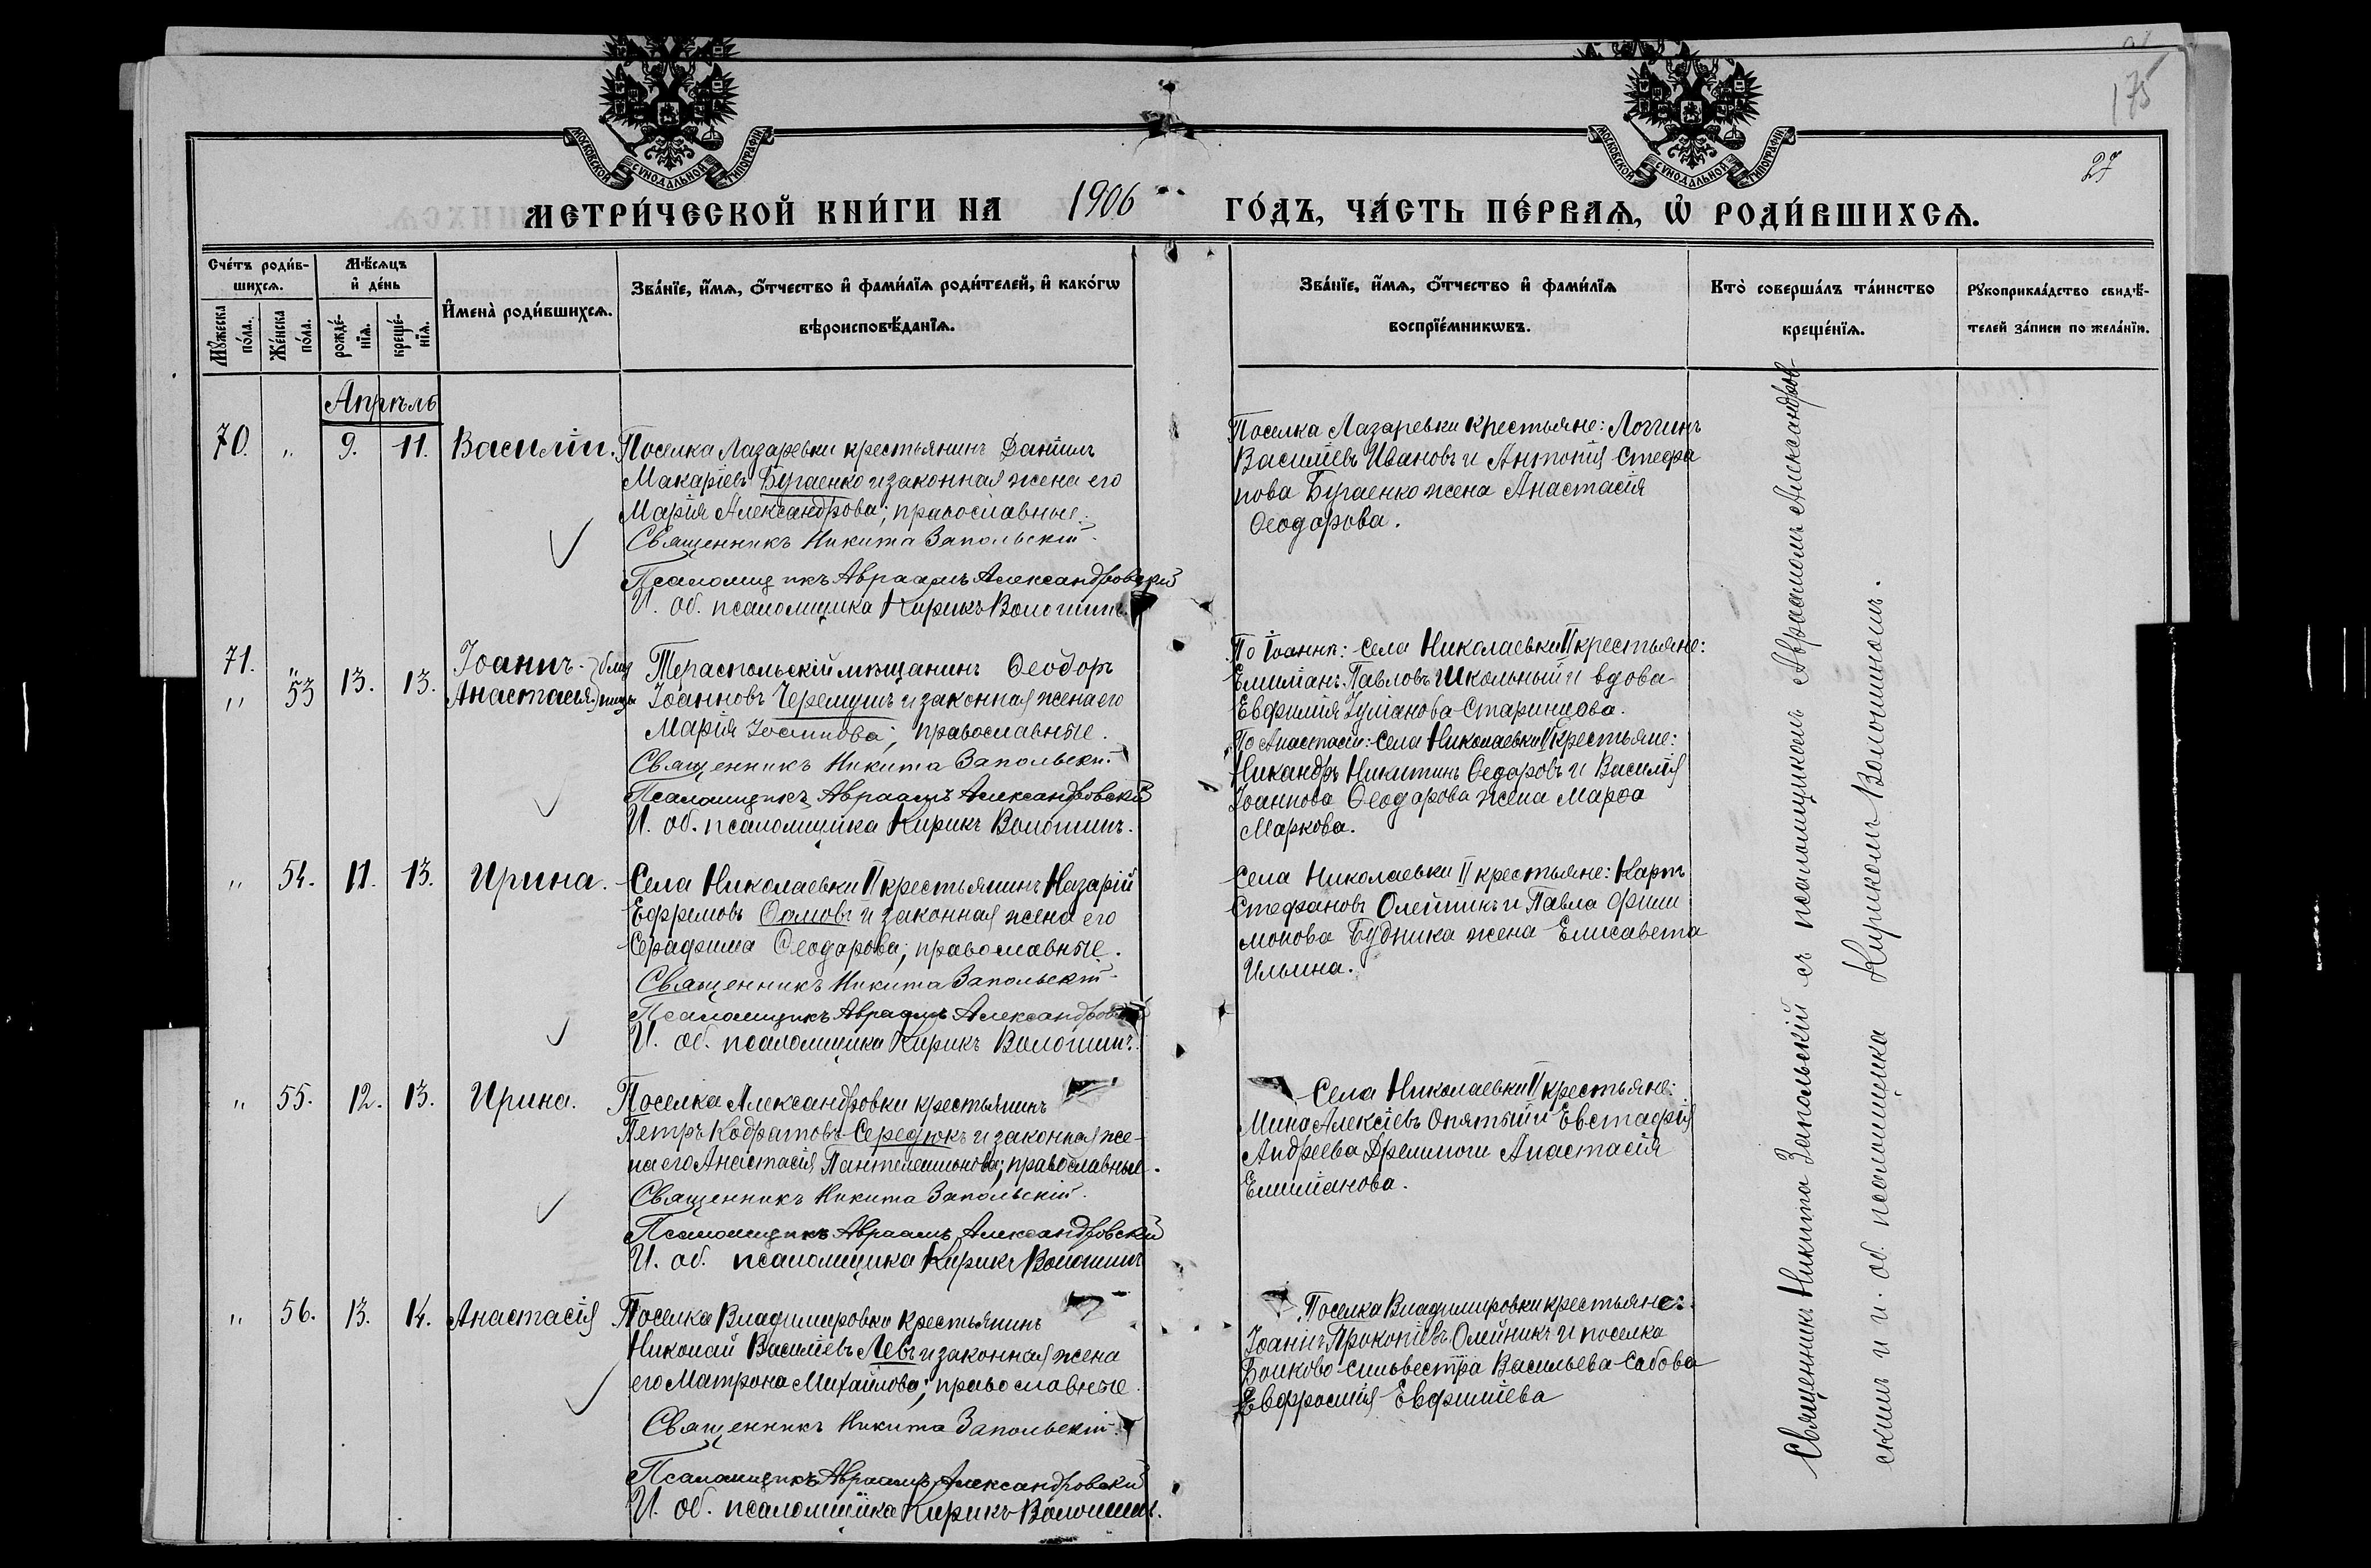 175
27
МОСКОВСКОЙ СѴНОДАЛЬНОЙ ТИПОГРАФІИ
МОСКОВСКОЙ СѴНОДАЛЬНОЙ ТИПОГРАФІИ
МЕТРИ́ЧЕСКОЙ КНИ́ГИ НА 1906 ГО́ДЪ, ЧА́СТЬ ПЕ́РВАѦ, Ѡ҆ РОДИ́ВШИХСѦ.
Сче́тъ роди́в-
шихсѧ.
Мꙋ́жеска по́ла.
Же́нска по́ла.
Мѣ́сѧцъ
и҆ де́нь
рожде́-
нїѧ.
креще́-
нїѧ.
И҆мена̀ роди́вшихсѧ.
Зва́нїе, и҆́мѧ, ѻ҆́тчество и҆ фами́лїѧ роди́телей, и҆ како́гѡ
вѣроисповѣ́данїѧ.
Зва́нїе, и҆́мѧ, ѻ҆́тчество и҆ фами́лїѧ
воспрїе́мникѡвъ.
Кто̀ соверша́лъ та́инство
креще́нїѧ.
Рꙋкоприкла́дство свидѣ́-
телей за́писи по жела́нїю.
Апрѣль
70. „ 9. 11. Василій. Поселка Лазаревки крестьянинъ Даніилъ
Макаріевъ Бугаенко и законная жена его
Марія Александрова; православные.
Священникъ Никита Запольскій
Псаломщикъ Авраамъ Александровскій
И. об. псаломщика Кирикъ Волошинъ.
Поселка Лазаревки крестьяне: Логгинъ
Василіевъ Ивановъ и Антонія Стефа
нова Бугаенко жена Анастасія
Ѳеодорова.
71. „ 13. 13. Іоаннъ } близ
„ 53 Анастасія } нецы
Тераспольскій мѣщанинъ Ѳеодоръ
Іоанновъ Черемушъ и законная жена его
Марія Іосипова; православные.
Священникъ Никита Запольскій
Псаломщикъ Авраамъ Александровскій
И. об. псаломщика Кирикъ Волошинъ.
По Іоаннѣ: села Николаевки II крестьяне:
Емиліанъ Павловъ Школьный и вдова
Евфимія Іуліанова Старинцова.
По Анастасіи: села Николаевки II крестьяне:
Никандръ Никитинъ Ѳедоровъ и Василія
Іоаннова Ѳеодорова жена Марѳа
Маркова.
„ 54. 11. 13. Ирина. Села Николаевки II крестьянинъ Назарій
Ефремовъ Ѳомовъ и законная жена его
Серафима Ѳеодорова; православные.
Священникъ Никита Запольскій
Псаломщикъ Авраамъ Александровскій
И. об. псаломщика Кирикъ Волошинъ.
Села Николаевки II крестьяне: Карпъ
Стефановъ Олейникъ и Павла Фили
монова Будника жена Елисавета
Ильина.
„ 55. 12. 13. Ирина. Поселка Александровки крестьянинъ
Петръ Кодратовъ Середюкъ и законная же-
на его Анастасія Пантелеимонова; православные.
Священникъ Никита Запольскій.
Псаломщикъ Авраамъ Александровскій
И. об. псаломщика Кирикъ Волошинъ
Села Николаевки II крестьяне:
Мина Алексіевъ Опятый и Евстафія
Андреева Анастасія
Емиліанова.
„ 56. 13. 14. Анастасія Поселка Владимировки крестьянинъ
Николай Василіевъ Левъ и законная жена
его Матрона Михайлова; православные.
Священникъ Никита Запольскій
Псаломщикъ Авраамъ Александровскій
И. об. псаломщика Кирикъ Волошинъ.
Поселка Владимировки крестьяне:
Іоаннъ Прокопіевъ Олейникъ и поселка
Боиково Сильвестра Васильева Сабова
Евфросинія Евфиміева
Священникъ Никита Запольскій съ псаломщикомъ Авраамомъ Александров-
скимъ и и. об. псаломщика Кирикомъ Волошиномъ.